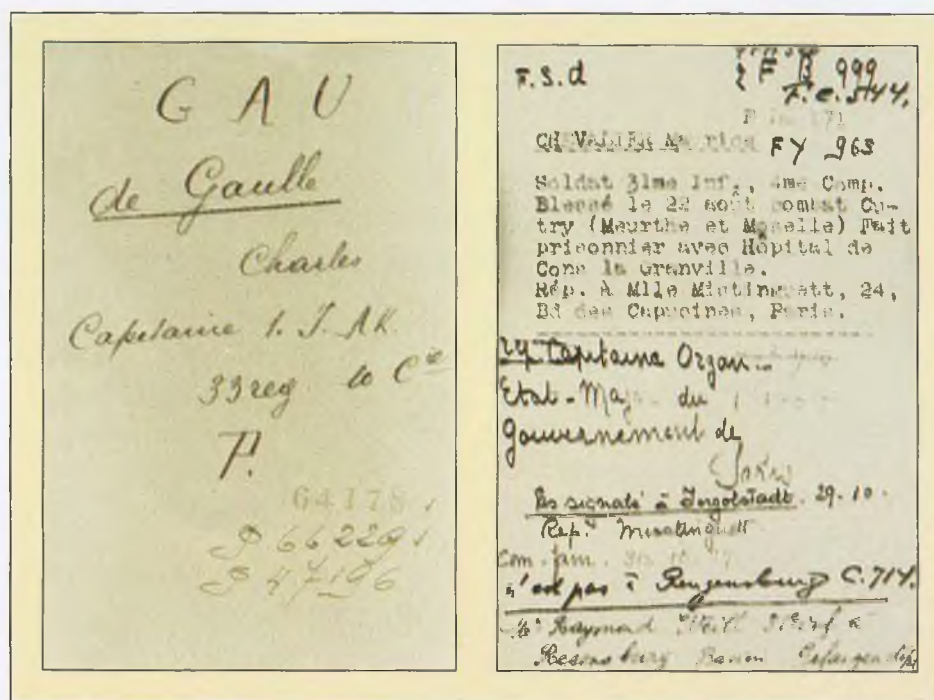 G A U
de Gaulle
Charles
Capitaine 1. J. A K.
33 reg 10 Cie
P.
64178
P 66229
P 47196
F.S.d
F B 999
F.C. 544.
CHEVALIER Maurice FY 963
Soldat 31me Inf., 4me Comp.
Blessé le 22 août combat Cu-
try (Meurthe et Moselle) Fait
prisonnier avec Hôpital de
Cons la Granville.
Rép. à Mlle Mistinguett, 24,
Bd des Capucines, Paris.
Capitaine Organ
Etat-Maj du
Gouvernement de
Paris
signalé à Ingolstadt. 29.10.
Rep. Mistinguett
Com. fam.
n'est pas à Regensburg C.714.
Raymond
Regensburg